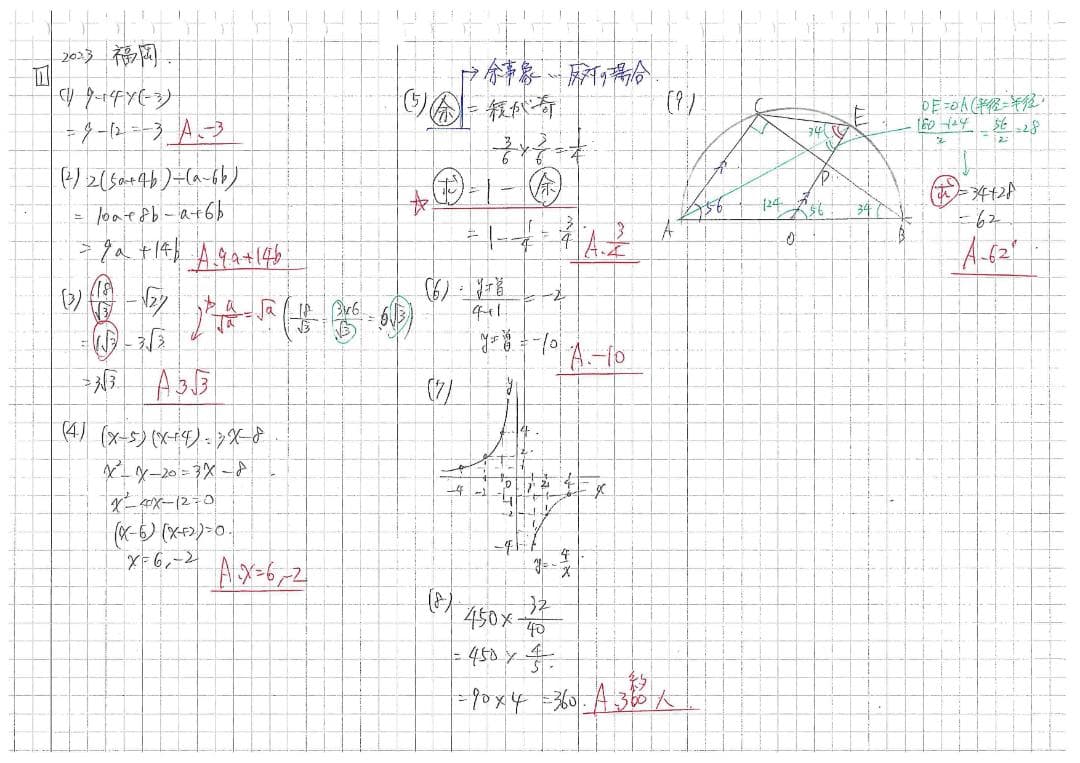 2023 福岡.
1
(1) 9+4×(-3)
= 9-12=-3 A.-3
(2) 2(5a+4b)-(a-6b)
= 10a+8b-a+6b
= 9a+14b A.9a+14b
(3) 18/√3 - √27
= 6√3 - 3√3
=3√3 A.3√3
* a/√a=√a (18/√3=3×6/√3=6√3)
(4) (x-5)(x+4)=3x-8
x²-x-20=3x-8
x²-4x-12=0
(x-6)(x+2)=0.
x=6,-2 A.x=6,-2
→余事象…反対の場合.
(5) 余=積が奇
3/6×3/6=1/4
☆ 求=1-余
=1-1/4=3/4 A.3/4
(6) =-2
4+1
=-10 A.-10
(7)
y
4
2
1
-4 -2 -1 0 1 2 4 x
-1
-2
-4
y=-4/x
(8) 450×32/40
=450×4/5
=90×4=360. A.約360人
(9)
C
E
34
P
56
124
56
34
A
O
B
OE=OA(半径=半径.
180-124/2=56/2=28
↓
求=34+28
=62
A.62°